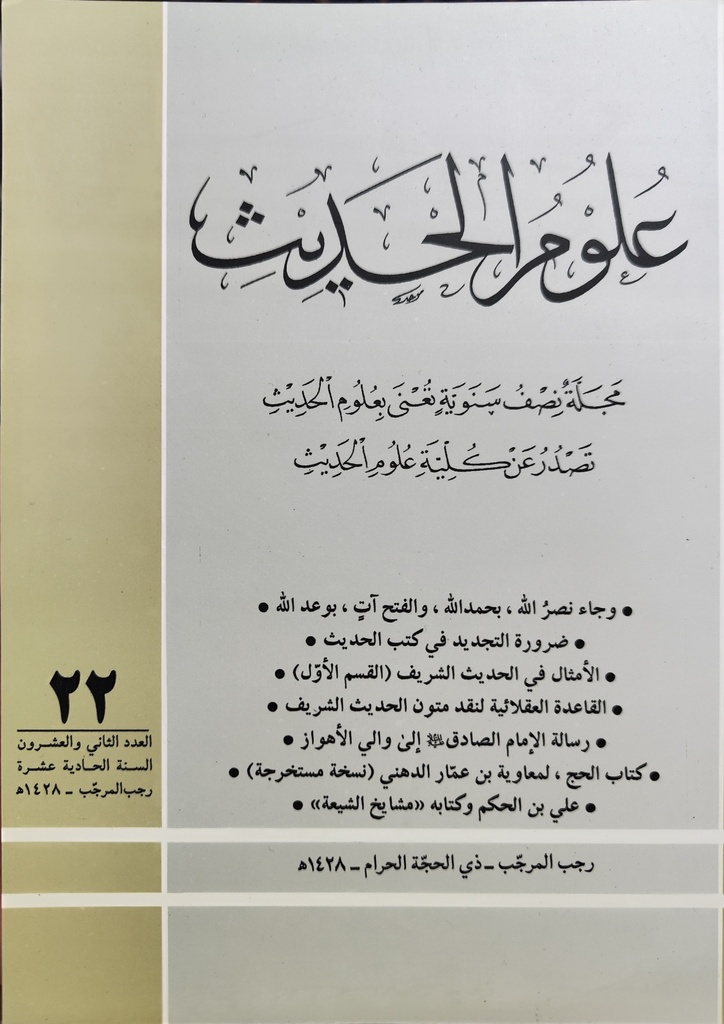 عُلُومُ الحَدِيثِ
مَجَلَّةٌ نِصْفُ سَنَوِيَّةٍ تُعْنَى بِعُلُومِ الْحَدِيْثِ
تَصْدُرُ عَنْ كُلِّيَّةِ عُلُومِ الْحَدِيْثِ
• وجاء نصرُ الله ، بحمدالله ، والفتح آتٍ ، بوعد الله •
• ضرورة التجديد في كتب الحديث •
• الأمثال في الحديث الشريف (القسم الأوّل) •
• القاعدة العقلائية لنقد متون الحديث الشريف •
• رسالة الإمام الصادق إلىٰ والي الأهواز •
• كتاب الحج ، لمعاوية بن عمّار الدهني (نسخة مستخرجة) •
• علي بن الحكم وكتابه «مشايخ الشيعة» •
رجب المرجّب ـ ذي الحجّة الحرام ـ ١٤٢٨ه
٢٢
العدد الثاني والعشرون
السنة الحادية عشرة
رجب المرجّب ـ ١٤٢٨ه